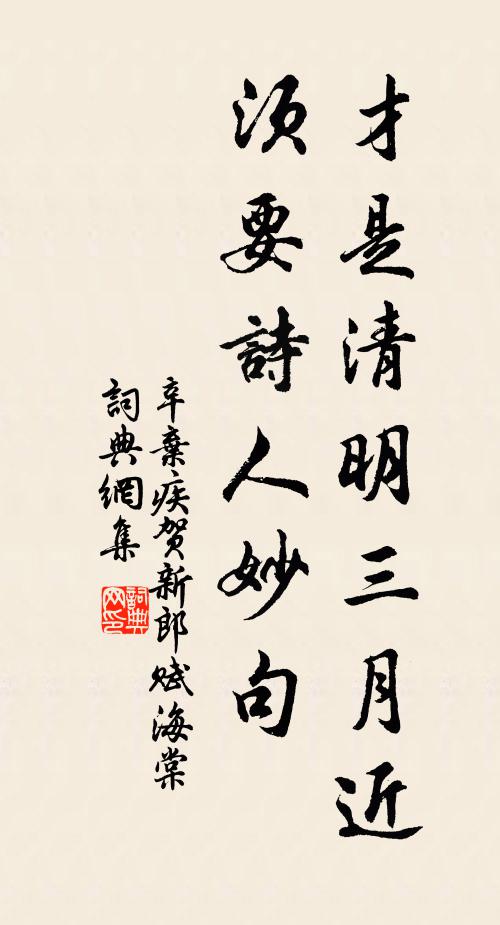 才是清明三月近
須要詩人妙句
辛棄疾賀新郎賦海棠
詞典網集
詞典网印